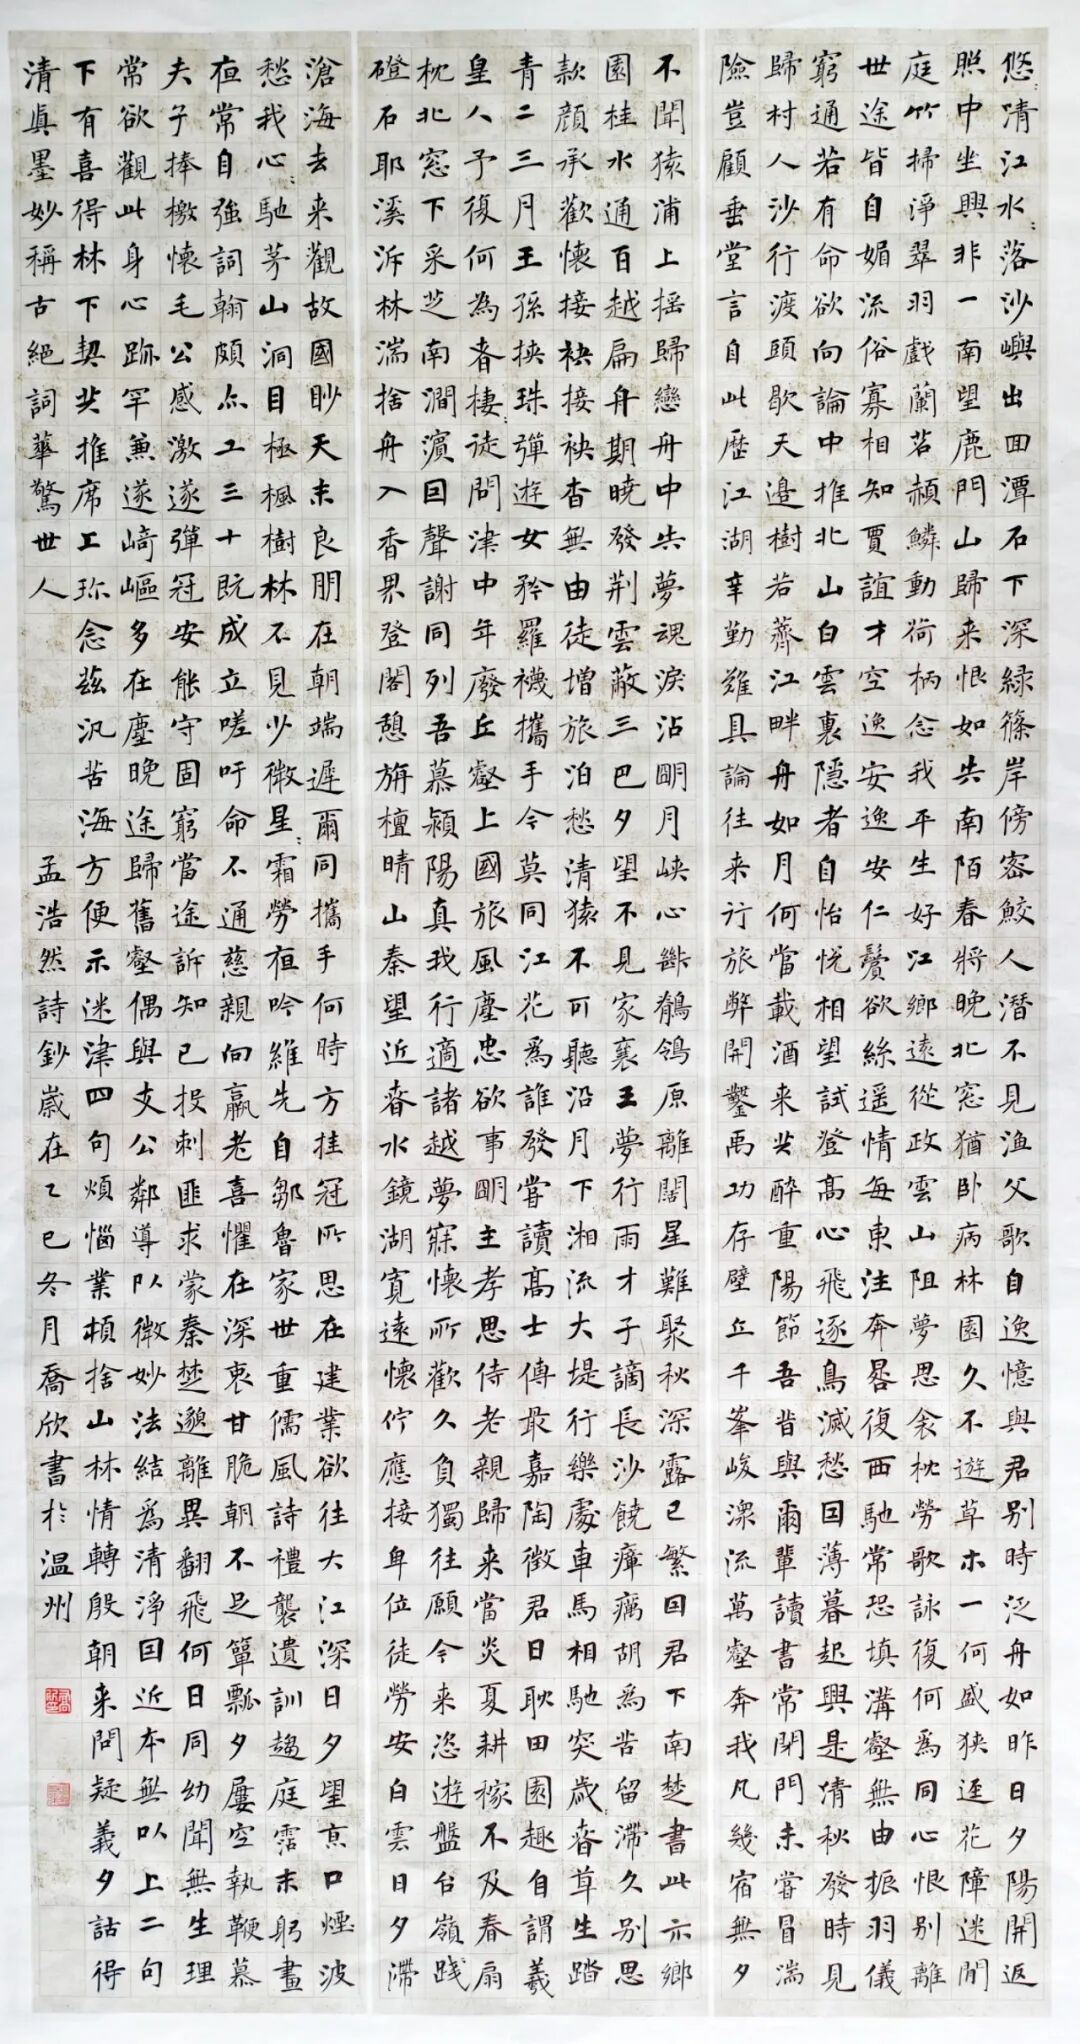 悠清江水落沙嶼出回潭石下深綠篠岸傍密鮫人潛不見漁父歌自逸憶與君別時泛舟如昨日夕陽開返
照中坐興非一南望鹿門山歸来恨如失南陌春將晚北窓猶臥病林園久不遊草木一何盛狹逕花障迷閒
庭竹掃淨翠羽戲蘭苕赬鱗動荷柄念我平生好江鄉遠從政雲山阻夢思衾枕勞歌詠復何為同心恨別離
世途皆自媚流俗寡相知賈誼才空逸安逸安仁鬢欲絲遥情每東注奔晷復西馳常恐填溝壑無由振羽儀
窮通若有命欲向論中推北山白雲裏隱者自怡悅相望試登高心飛逐鳥滅愁因薄暮起興是清秋發時見
歸村人沙行渡頭歇天邊樹若薺江畔舟如月何當載酒来共醉重陽節吾昔與爾輩讀書常閉門未嘗冒湍
險豈顧垂堂言自此歷江湖辛勤難具論往来行旅弊開鑿禹功存壁丘千峯峻深流萬壑奔我凡幾宿無夕
不聞猿浦上摇歸戀舟中失夢魂淚沾明月峽心斷鶺鴒原離闊星難聚秋深露已繁因君下南楚書此示鄉
園桂水通百越扁舟期曉發荆雲蔽三巴夕望不見家襄王夢行雨才子謫長沙饒瘴癘胡為苦留滯久別思
款顏承歡懷接袂接袂杳無由徒增旅泊愁清猿不可聽沿月下湘流大堤行樂處車馬相馳突歳春草生踏
青二三月王孫挾珠彈遊女矜羅襪攜手今莫同江花爲誰發嘗讀高士傳最嘉陶徵君日耽田園趣自謂羲
皇人予復何為者棲徒問津中年廢丘壑上國旅風塵忠欲事明主孝思侍老親歸来當炎夏耕稼不及春扇
枕北窓下采芝南澗濵因聲謝同列吾慕潁陽真我行適諸越夢寐懷所歡久負獨往願今来恣遊盤台嶺踐
磴石耶溪泝林湍捨舟入香界登閣憩旃檀晴山秦望近春水鏡湖寛遠懷佇應接卑位徒勞安白雲日夕滯
滄海去来觀故國眇天末良朋在朝端遲爾同攜手何時方挂冠所思在建業欲往大江深日夕望京口煙波
愁我心馳茅山洞目極楓樹林不見少微星霜勞夜吟維先自鄒魯家世重儒風詩禮襲遺訓趨庭霑末躬晝
夜常自強詞翰頗亦工三十既成立嗟吁命不通慈親向羸老喜懼在深衷甘脆朝不足簞瓢夕屢空執鞭慕
夫子捧檄懷毛公感激遂彈冠安能守固窮當途訴知己投刺匪求蒙秦楚邈離異翻飛何日同幼聞無生理
常欲觀此身心跡罕兼遂崎嶇多在塵晚途歸舊壑偶與支公鄰導以微妙法結爲清淨因近本無以上二句
下有喜得林下契共推席上珍念茲汎苦海方便示迷津四句煩惱業頓捨山林情轉殷朝来問疑義夕話得
清真墨妙稱古絕詞華驚世人
孟浩然詩鈔歲在乙巳冬月喬欣書於温州